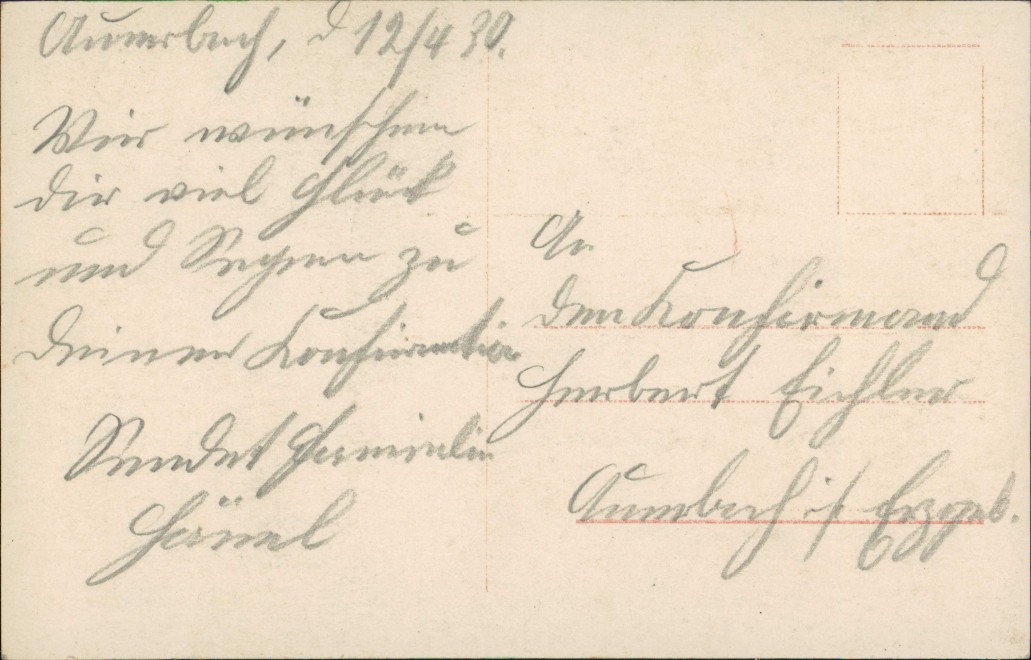 Auerbach, d 12/4 30.
Wir wünschen
dir viel Glück
und Segen zu
deiner Konfirmation
Sendet Familie
Hänel
An
den Konfirmand
Herbert Eichler
Auerbach i/ Erzgeb.